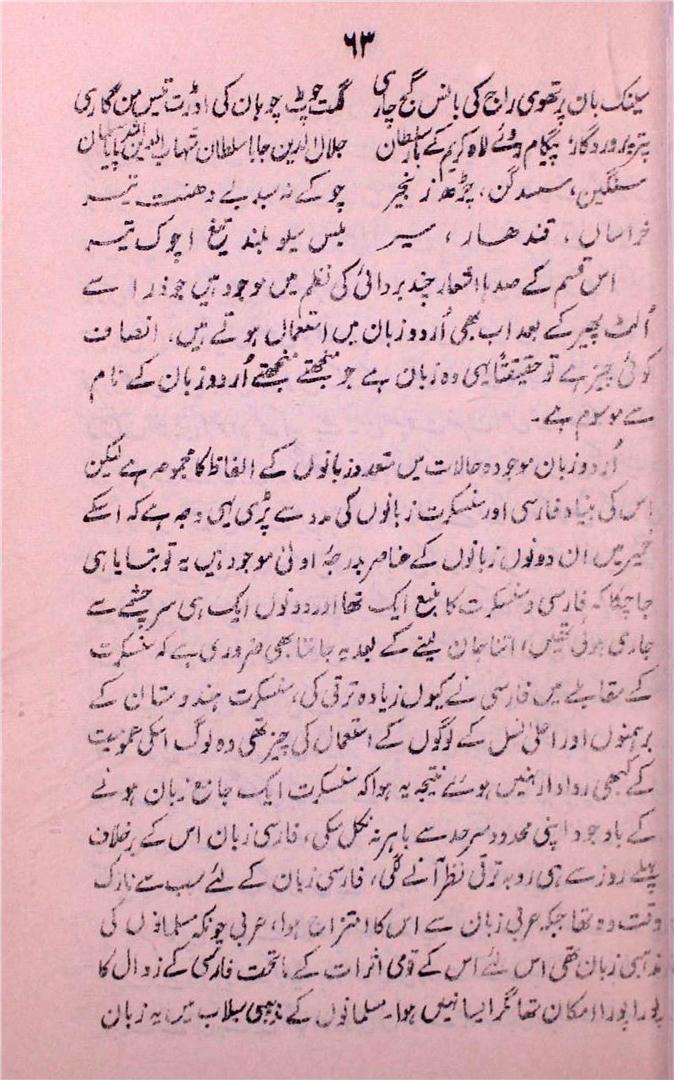 ۶۳
سینک بان پرتھوی راج کی بانس گج چاری گمت چوپٹ چوہان کی اوڈرت تیس من گاری
پروردگار پیگام وئے لاہ کریم کے بار سلطان جلال الدین جابا سلطان شہاب الدین
سنگین، سعد گن، چڑھ زنجیر چو کے نہ سبد بے دھنت تیر
خراساں، قندھار، سیر بلس سیلو بلند تیغ اچوک تیر
اس قسم کے صدہا اشعار چند بردائی کی نظم میں موجود ہیں جو ذرا سے
اُلٹ پھیر کے بعد اب بھی اُردو زبان میں استعمال ہوتے ہیں، انصاف
کوئی چیز ہے تو حقیقتاً یہی وہ زبان ہے جو منجھتے منجھتے اُردو زبان کے نام
سے موسوم ہے۔
اُردو زبان موجودہ حالات میں متعدد زبانوں کے الفاظ کا مجموعہ ہے لیکن
اس کی بنیاد فارسی اور سنسکرت زبانوں کی مدد سے پڑی یہی وجہ ہے کہ اسکے
خمیر میں ان دونوں زبانوں کے عناصر بدرجۂ اولیٰ موجود ہیں یہ تو بتایا ہی
جا چکا کہ فارسی و سنسکرت کا منبع ایک تھا اور دونوں ایک ہی سرچشمے سے
جاری ہوئی تھیں، اتنا جان لینے کے بعد یہ جاننا بھی ضروری ہے کہ سنسکرت
کے مقابلے میں فارسی نے کیوں زیادہ ترقی کی، سنسکرت ہندوستان کے
برہمنوں اور اعلیٰ نسل کے لوگوں کے استعمال کی چیز تھی وہ لوگ اسکی عمومیت
کے کبھی روادار نہیں ہوئے نتیجہ یہ ہوا کہ سنسکرت ایک جامع زبان ہونے
کے باوجود اپنی محدود سرحد سے باہر نہ نکل سکی، فارسی زبان اس کے برخلاف
پہلے روز سے ہی روبہ ترقی نظر آنے لگی، فارسی زبان کے لئے سب سے نازک
وقت وہ تھا جبکہ عربی زبان سے اس کا امتزاج ہوا، عربی چونکہ مسلمانوں کی
مذہبی زبان تھی اس لئے اس کے قومی اثرات کے ماتحت فارسی کے زوال کا
پورا پورا امکان تھا مگر ایسا نہیں ہوا۔ مسلمانوں کے مذہبی سیلاب میں یہ زبان